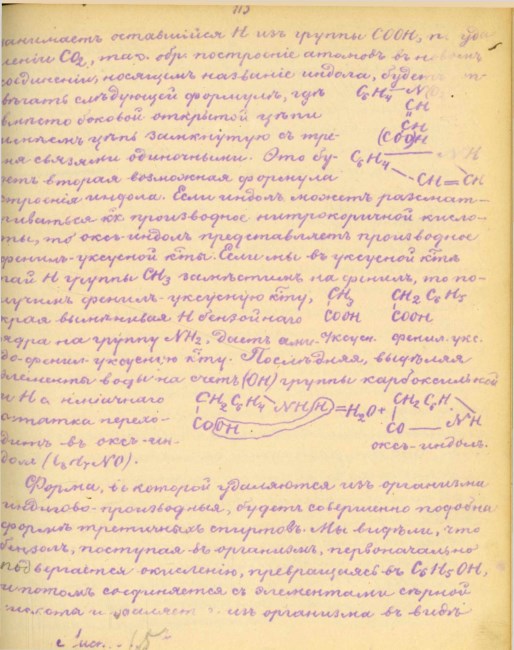 113
занимаетъ оставшійся Н изъ группы СООН, п. уда
леніи CO2, так. обр. построеніе атомовъ въ новомъ
соединеніи, носящемъ названіе индола, будетъ от-
вѣчать слѣдующей формулѣ, гдѣ C6H4 — NO2
вмѣсто боковой открытой цѣпи CH
имѣемъ цѣпь замкнутую съ тре- CH
мя связями одиночными. Это бу- COOH
детъ вторая возможная формула C6H4 NH
строенія индола. Если индолъ можетъ разсмат- CH = CH
риваться какъ производное нитрокоричной кисло-
ты, то оксъ-индолъ представляетъ производное
фенилъ-уксусной к̃ты. Если мы въ уксусной к̃тѣ
Н группы CH3 замѣстимъ на фенилъ, то по-
лучимъ фенилъ-уксусную к̃ту, CH3 CH2 C6H5
края вымѣнивая Н бензойнаго COOH COOH
ядра на группу NH2, дастъ ами- Уксусн. фенил.-укс.
до-фенил-уксусную к̃ту. Послѣдняя, выдѣляя
элементы воды на счетъ (ОН) группы карбоксильной
и Н амѝчнаго CH2 C6H4 — NH H = H2O + CH2 C6H
остатка перехо- COOH CO — NH
дитъ въ оксъ-ин- оксъ-индолъ.
долъ (C8H7NO).
Форма, въ которой удаляются изъ организма
индолово-производныя, будетъ совершенно подобна
формѣ третичныхъ спиртовъ. Мы видѣли, что
бензолъ, поступая въ организмъ, первоначально
подвергается окисленію, превращаясь въ C6H5OH,
и потомъ соединяется съ элементами сѣрной
кислоты и удаляется изъ организма въ видѣ